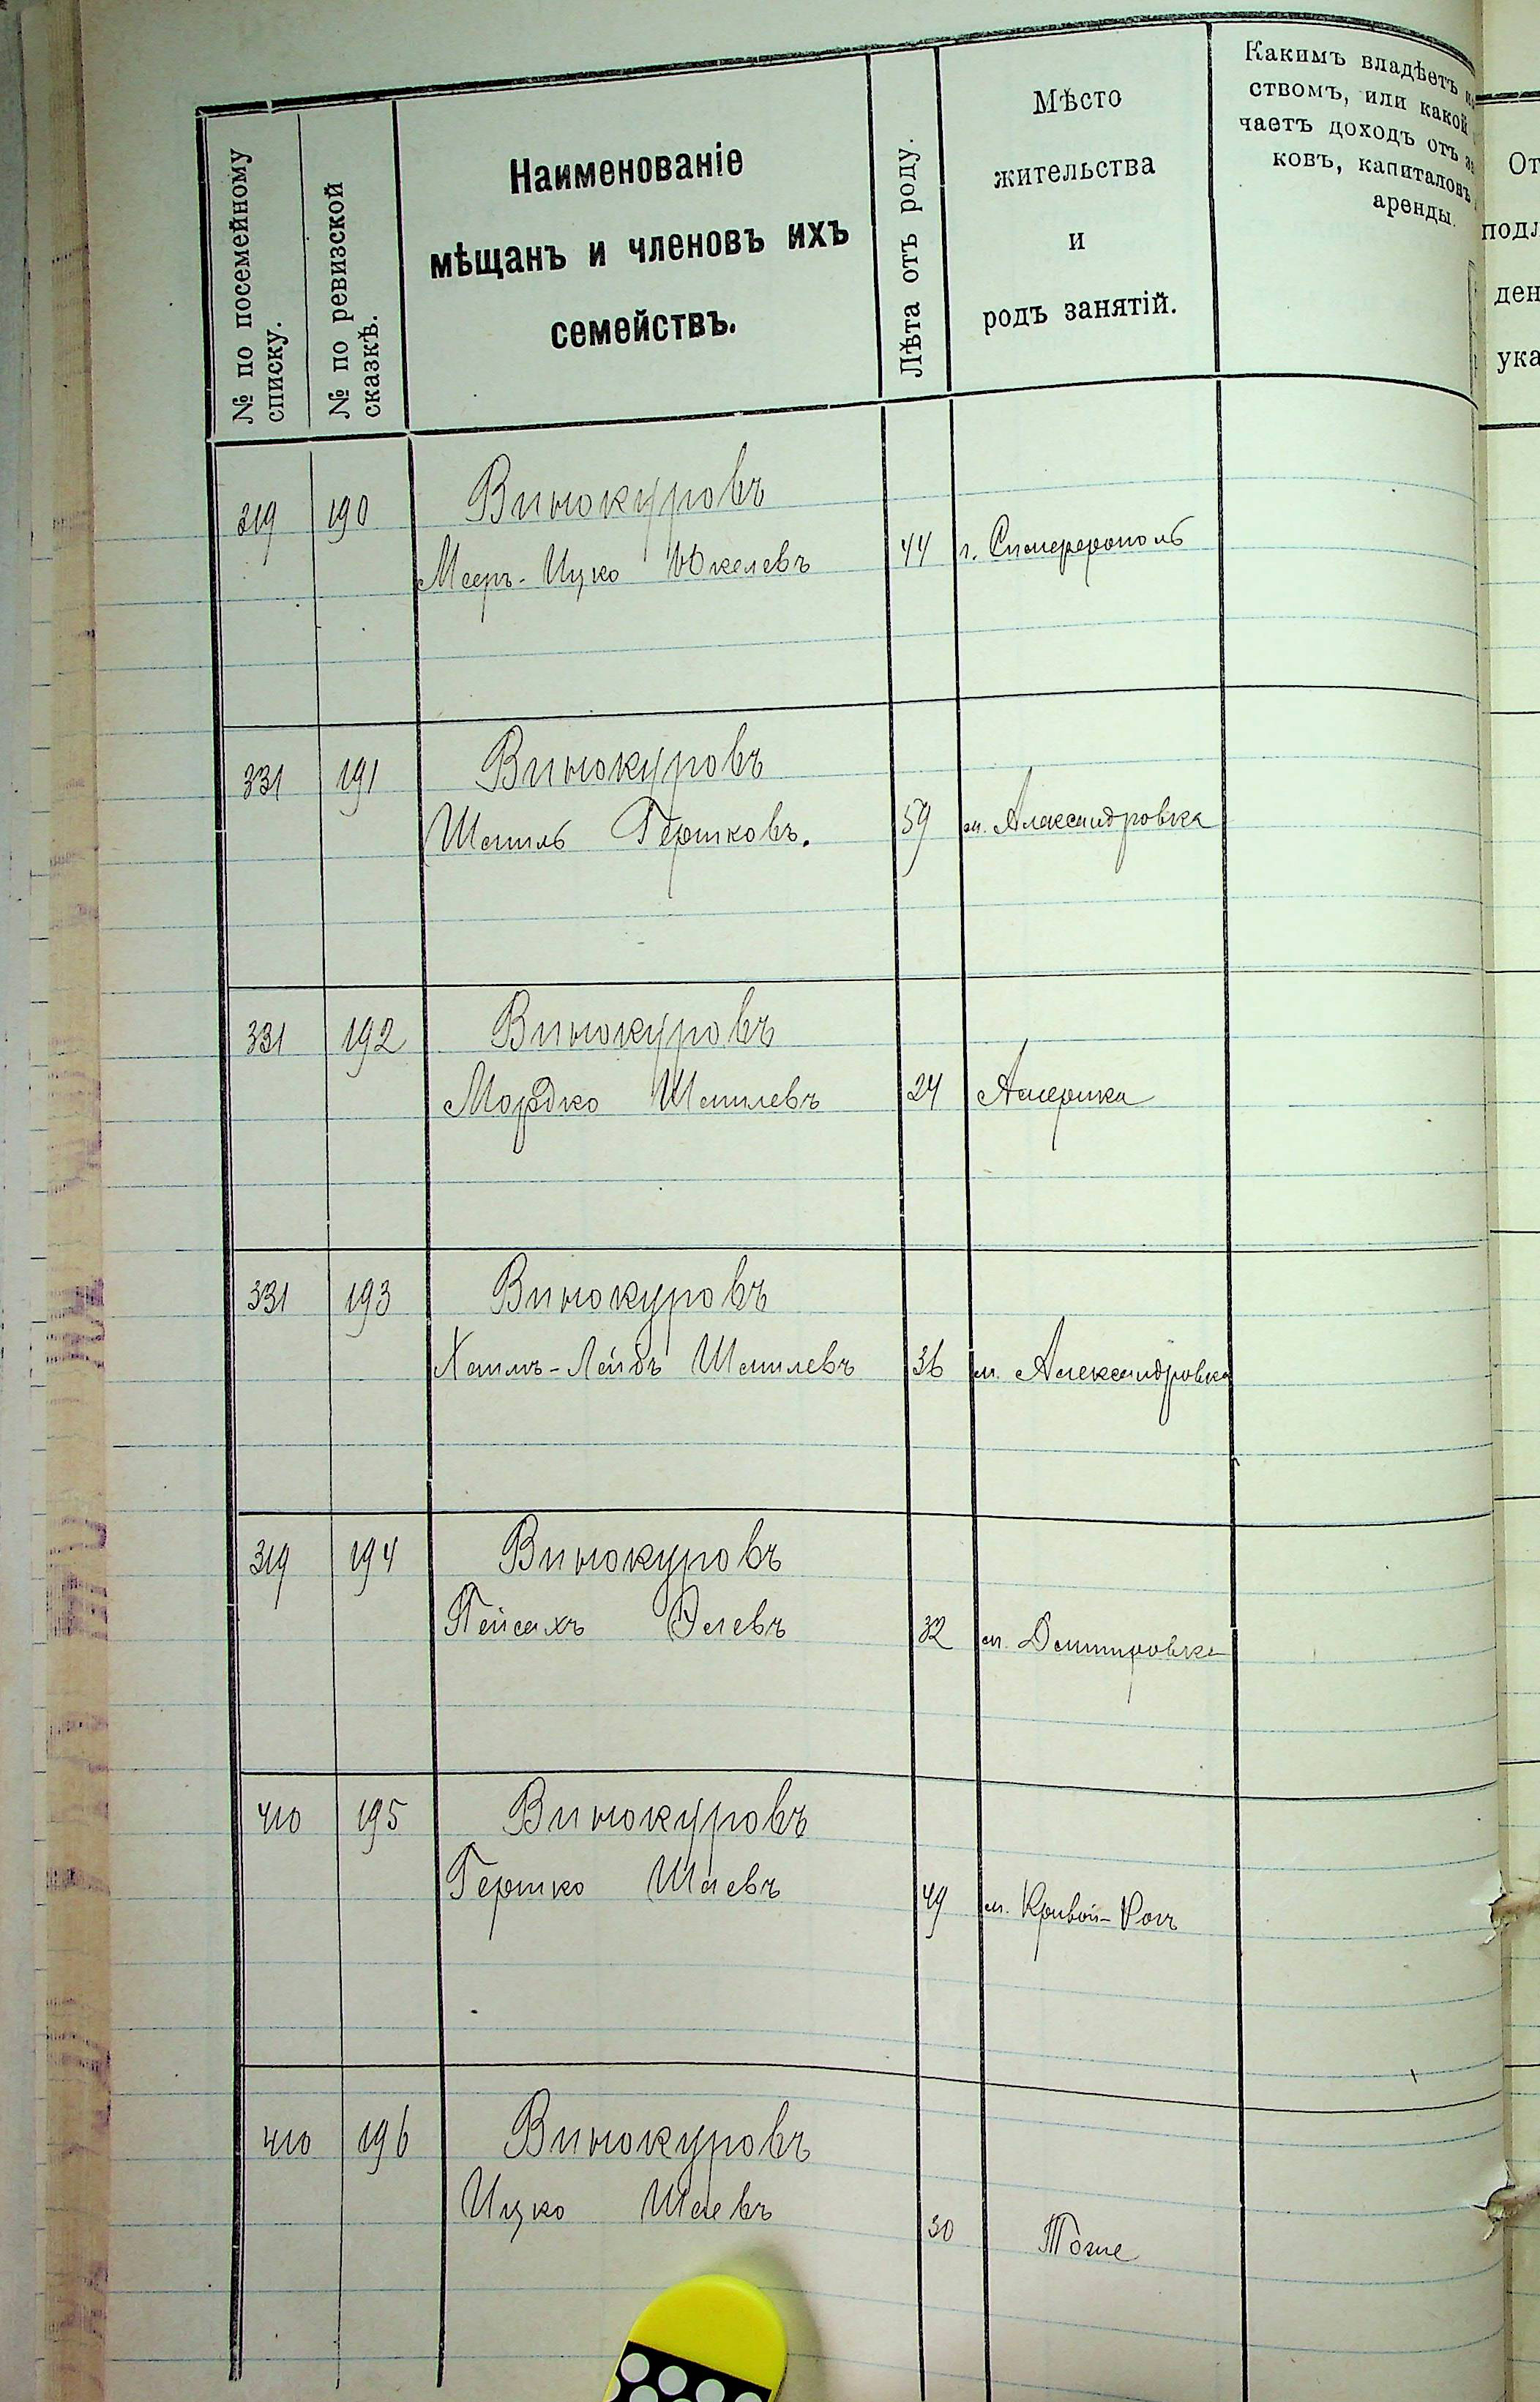 № по посемейному
списку.
№ по ревизской
сказкѣ.
Наименованіе
мѣщанъ и членовъ ихъ
семействъ.
Лѣта отъ роду.
Мѣсто
жительства
и
родъ занятій.
Какимъ владѣетъ
ствомъ, или какой
чаетъ доходъ отъ
ковъ, капиталовъ
аренды.
От
подл
ден
ука
319 190 Винокуровъ
Мееръ-Ицко Юкелевъ 44 г. Симферополь
331 191 Винокуровъ
Шмиль Гершковъ. 59 м. Александровка
331 192 Винокуровъ
Мордко Шмилевъ 24 Америка
331 193 Винокуровъ
Хаимъ-Лейбъ Шмилевъ 36 м. Александровка
319 194 Винокуровъ
Пейсахъ 32 м. Дмитровка
410 195 Винокуровъ
Гершко Шаевъ 49 м. Кривой-Рогъ
410 196 Винокуровъ
Ицко Шаевъ 30 Тоже